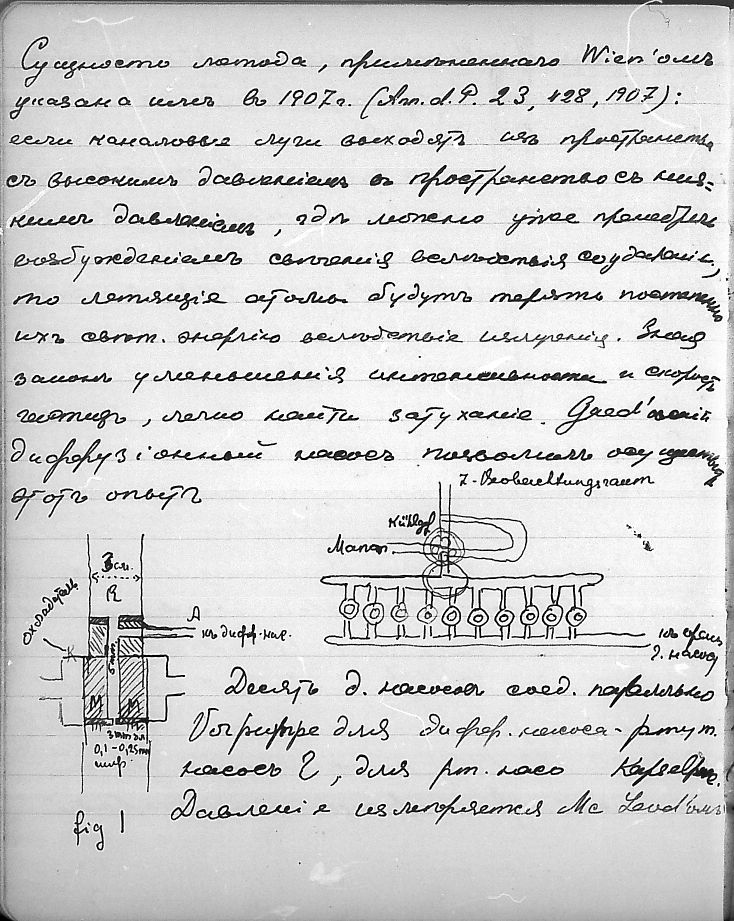 Сущность метода, примѣненнаго Wien'омъ
указана имъ въ 1907 г. (Ann. d. P. 23, 428, 1907):
если каналовые лучи выходятъ изъ пространства
съ высокимъ давленіемъ въ пространство съ низ=
кимъ давленіемъ, гдѣ можно уже пренебречь
возбужденіемъ свѣченія вслѣдствія соударенія,
то летящіе атомы будутъ терять постепенно
ихъ свѣт. энергію вслѣдствіе излученія. Зная
законъ уменьшенія интенсивности и скорость
частицъ, легко найти затуханіе. Gaed'овскій
диффузіонный насосъ позволилъ осуществить
этотъ опытъ
Z-Beobachtungsraum
Kühlgef.
Манот.
3 см.
R
охладитель
A
къ дифф. нас.
K
6 mm.
M M
3 mm дл.
0,1-0,25 mm
шир.
къ
Г. насосу
Десять д. насосовъ соед. параллельно
для дифф. насоса - ртут.
насосъ Г, для рт. насо Kapselpu.
Давленіе измѣряется Mc Leod'омъ
fig 1